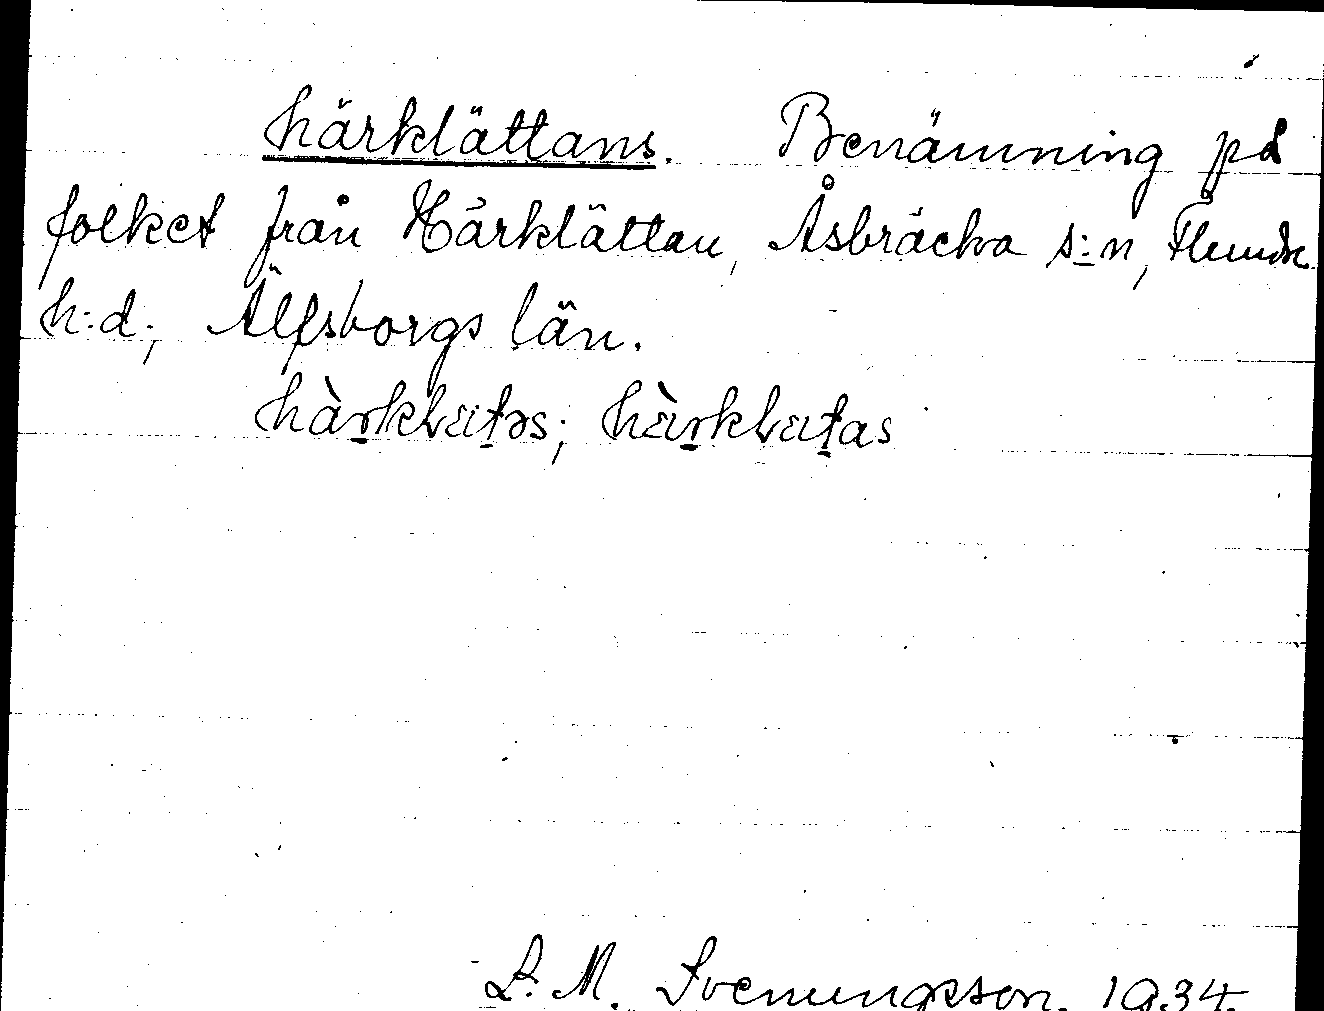 härklättans. Benämning på
folket från Härklättan, Åsbräcka s:n, Flundre
h:d; Älfsborgs län.
L. M. Svenungsson. 1934.